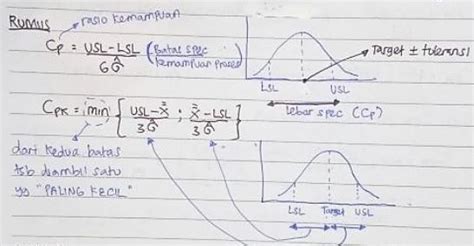 RUMUS
rasio kemampuan
Cp = USL-LSL / 6σ̂ (Batas spec / kemampuan proses)
Target ± toleransi
LSL USL
lebar spec (Cp)
Cpk = min { USL-X̿ / 3σ̂ ; X̿-LSL / 3σ̂ }
dari kedua batas
tsb diambil satu
yg "PALING KECIL"
LSL Target USL